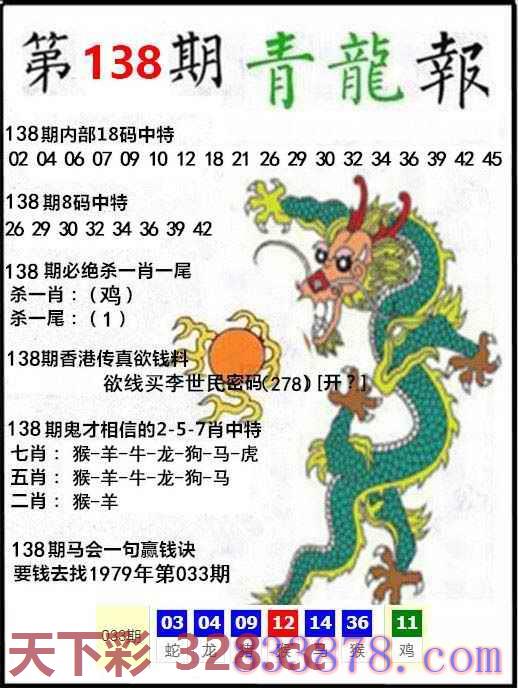 第138期 青龍報
138期内部18码中特
02 04 06 07 09 10 12 18 21 26 29 30 32 34 36 39 42 45
138期8码中特
26 29 30 32 34 36 39 42
138期必绝杀一肖一尾
杀一肖：（鸡）
杀一尾：（1）
138期香港传真欲钱料
欲线买李世民密码(278)[开？]
138期鬼才相信的2-5-7肖中特
七肖：猴-羊-牛-龙-狗-马-虎
五肖：猴-羊-牛-龙-狗-马
二肖：猴-羊
138期马会一句赢钱诀
要钱去找1979年第033期
033期 03 04 09 12 14 36 11
蛇 龙 猪 猴 马 猴 鸡
天下彩 328.cc
833878.com